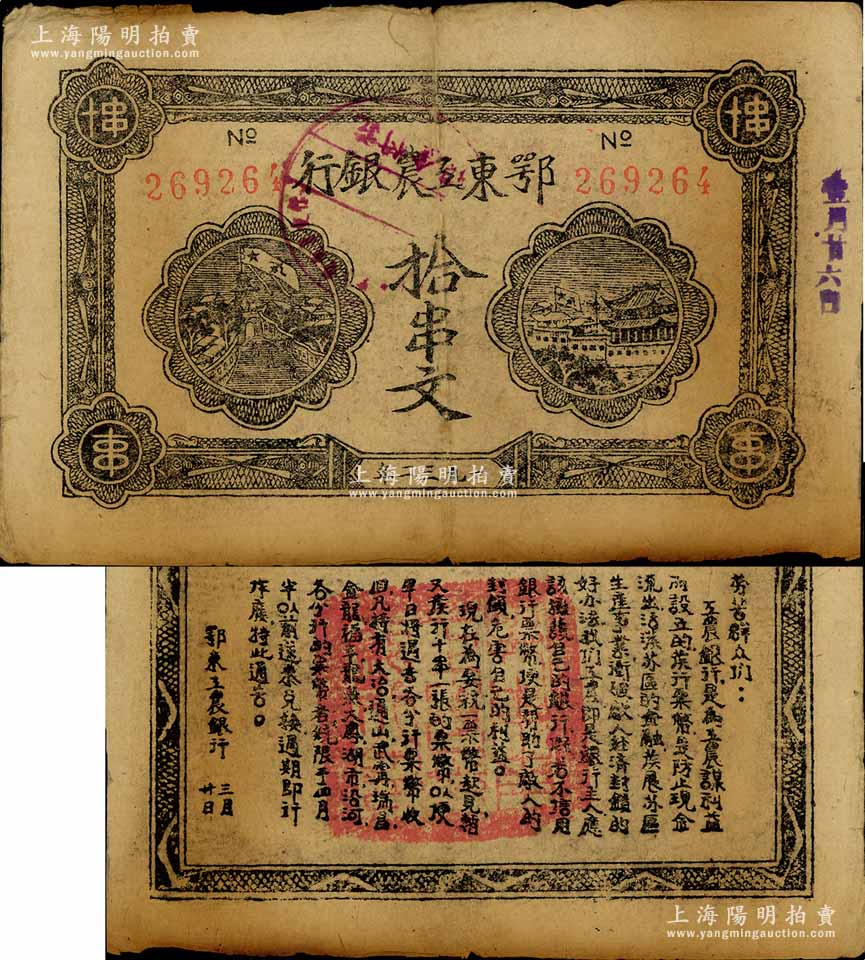 上海陽明拍賣
www.yangmingauction.com
上海陽明拍賣
www.yangmingauction.com
№
№
269264
鄂東工農銀行
269264
拾串文
壹月廿六日
上海陽明拍賣
www.yangmingauction.com
勞苦群众们：
工農銀行是為工農謀利益
而設立的發行票幣是防止現金
流出活潑苏區的金融發展苏區
生產事業衝過敵人經濟封鎖的
好办法我们工農即是銀行主人應
該擁護自己的銀行
銀行票幣便是帮助了敵人的
封鎖危害自己的利益。
現在為要統一票幣起見
又發行十串一張的票幣以便
早日將過去各分行票幣收
但凡持有大冶通山武寧瑞昌
金龍福
各分行的票幣者統限于四月
半以前送來兌換過期即行
作廢特此通告。
鄂東工農銀行 三月廿日
上海陽明拍賣
www.yangmingauction.com